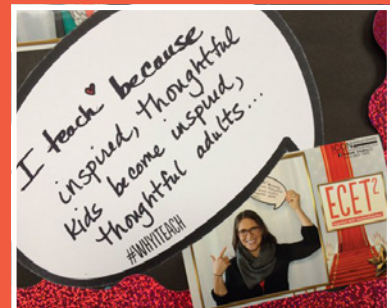 I teach because
inspired, thoughtful
kids become inspired,
thoughtful adults...
#WHYITEACH
ECET2